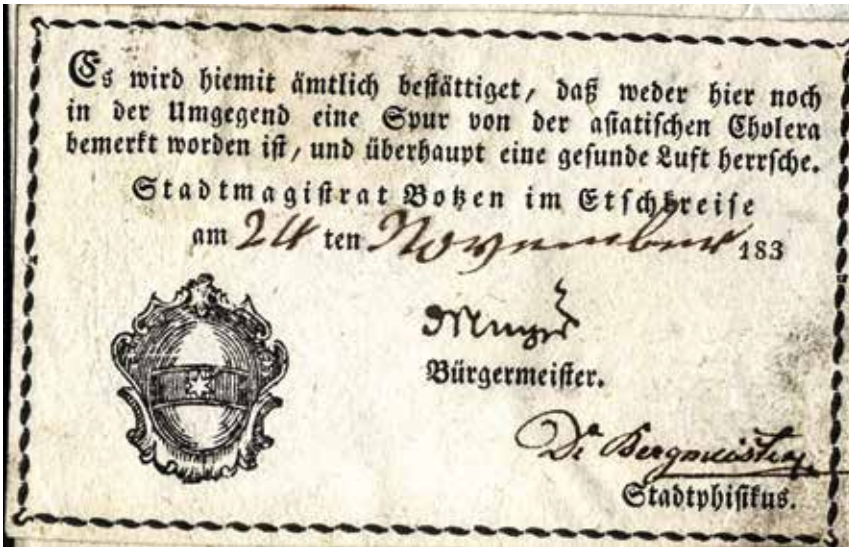 Es wird hiemit ämtlich bestättiget, daß weder hier noch
in der Umgegend eine Spur von der asiatischen Cholera
bemerkt worden ist, und überhaupt eine gesunde Luft herrsche.
Stadtmagistrat Botzen im Etschkreise
am 24 ten November 183
Bürgermeister.
Dr Bergmeister
Stadtphisikus.